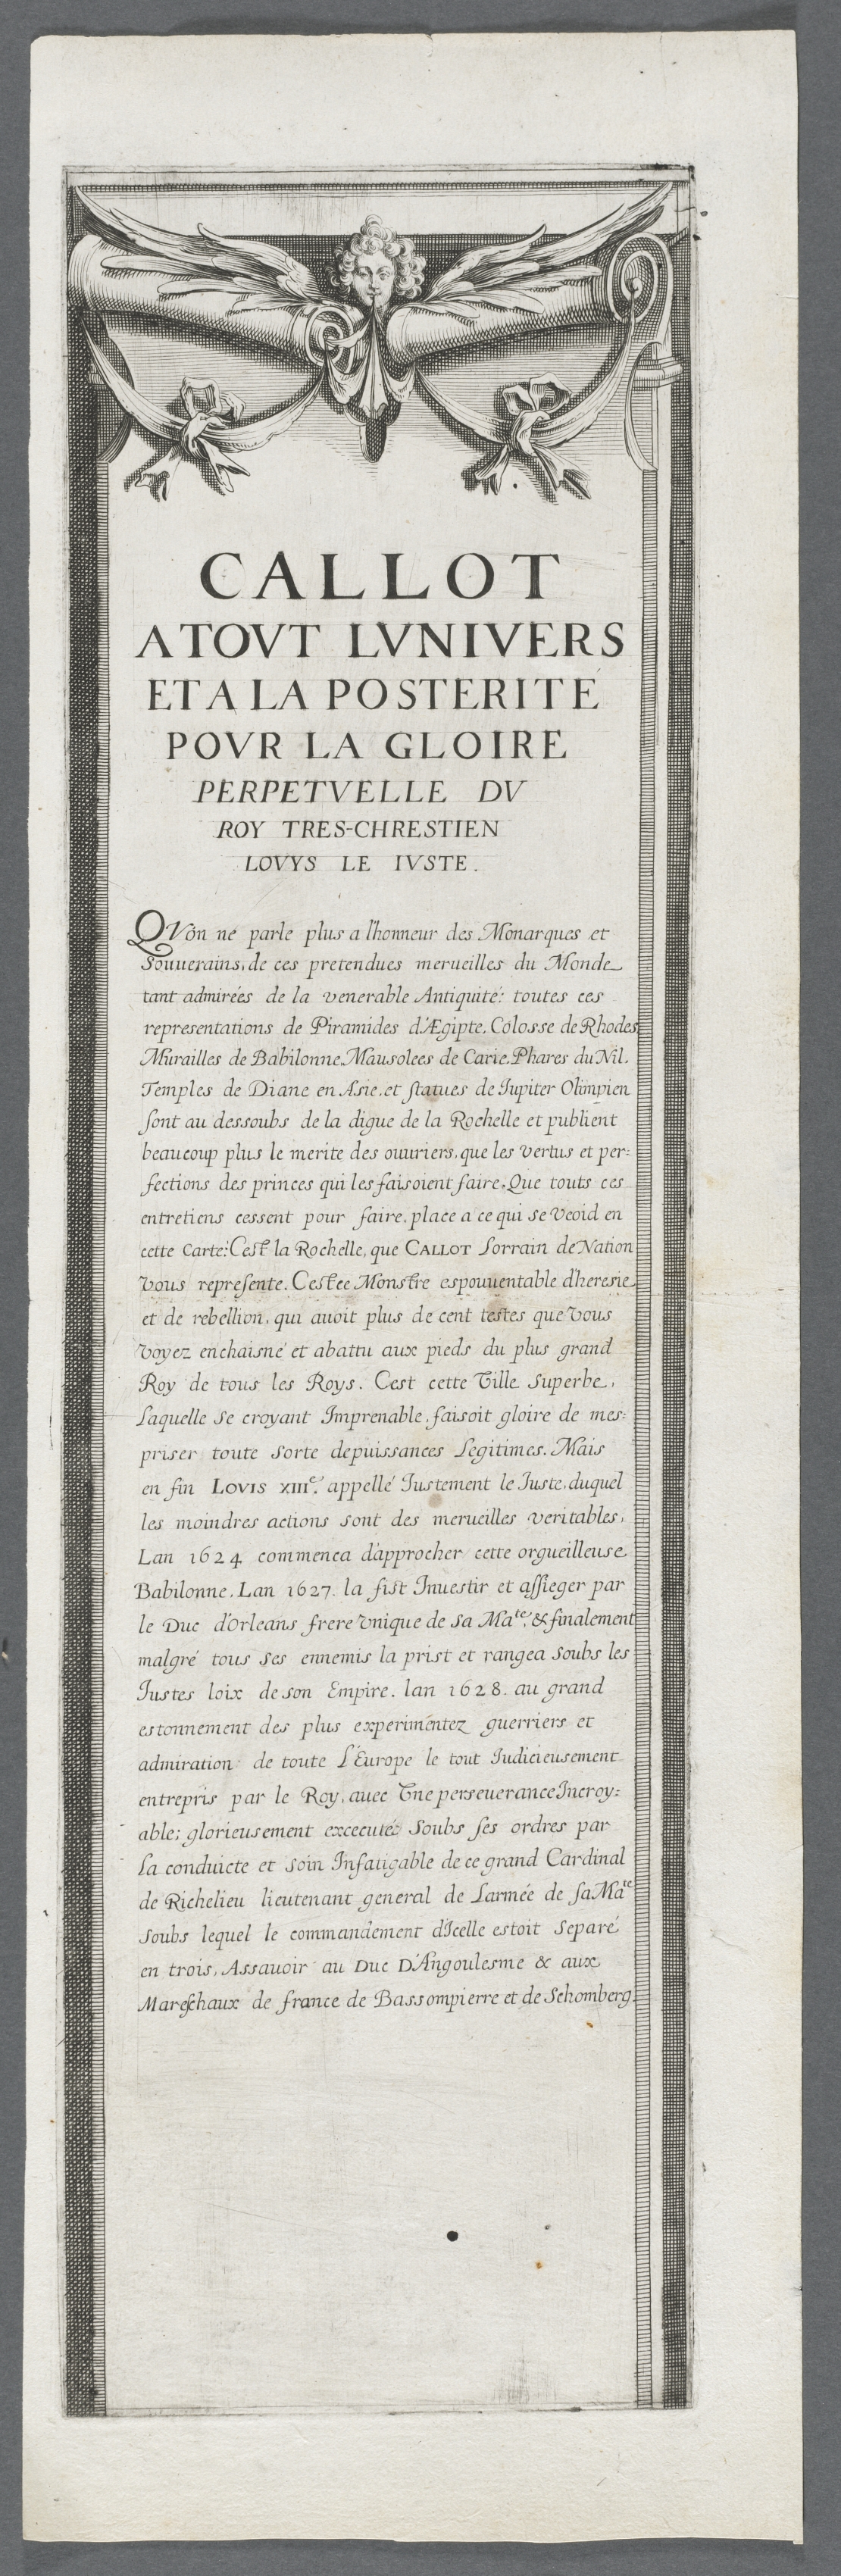 CALLOT
A TOVT LVNIVERS
ET A LA POSTERITÉ
POVR LA GLOIRE
PERPETVELLE DV
ROY TRES-CHRESTIEN
LOVYS LE IVSTE.
QVon ne parle plus a l'honneur des Monarques et
Souuerains, de ces pretendues merueilles du Monde
tant admirées de la venerable Antiquité: toutes ces
representations de Piramides d'Ægipte, Colosse de Rhodes,
Murailles de Babilonne, Mausolees de Carie, Phares du Nil,
Temples de Diane en Asie, et statues de Iupiter Olimpien
sont au dessoubs de la digue de la Rochelle et publient
beaucoup plus le merite des ouuriers, que les vertus et per=
fections des princes qui les faisoient faire. Que touts ces
entretiens cessent pour faire place a ce qui se veoid en
cette Carte: Cest la Rochelle, que CALLOT Lorrain de Nation
vous represente. Cest ce Monstre espouuentable d'heresie
et de rebellion, qui auoit plus de cent testes que vous
voyez enchaisné et abattu aux pieds du plus grand
Roy de tous les Roys. Cest cette Ville Superbe,
Laquelle se croyant Imprenable, faisoit gloire de mes=
priser toute sorte de puissances Legitimes. Mais
en fin LOVIS XIIIe. appellé Iustement le Iuste, duquel
les moindres actions sont des merueilles veritables,
Lan 1624 commenca d'approcher cette orgueilleuse
Babilonne. Lan 1627. la fist Inuestir et assieger par
le Duc d'Orleans frere vnique de sa Mate. & finalement
malgré tous ses ennemis la prist et rangea soubs les
Iustes loix de son Empire. lan 1628. au grand
estonnement des plus experimentez guerriers et
admiration de toute L'Europe le tout Iudicieusement
entrepris par le Roy, auec Vne perseuerance Incroy=
able; glorieusement excecuté Soubs ses ordres par
La conduicte et soin Infatigable de ce grand Cardinal
de Richelieu lieutenant general de Larmée de sa Mate
soubs lequel le commandement d'Icelle estoit Separé
en trois, Assauoir au Duc D'Angoulesme & aux
Mareschaux de france de Bassompierre et de Schomberg.